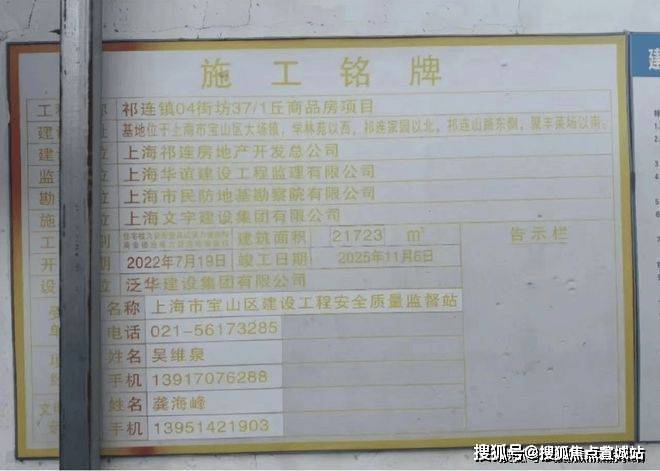 施工铭牌
工 称 祁连镇04街坊37/1丘商品房项目
建 址 基地位于上海市宝山区大场镇，学林苑以西，祁连家园以北，祁连山路东侧，聚丰菜场以南。
建 位 上海祁连房地产开发总公司
监 位 上海华谊建设工程监理有限公司
勘 位 上海市民防地基勘察院有限公司
施 位 上海文宇建设集团有限公司
工 别 建筑面积 21723 m² 告示栏
开 期 2022年7月19日 竣工日期 2025年11月6日
设 位 泛华建设集团有限公司
名称 上海市宝山区建设工程安全质量监督站
单 电话 021-56173285
姓名 吴维泉
手机 13917076288
文 姓名 龚海峰
手机 13951421903
建
搜狐号@搜狐焦点宣城站